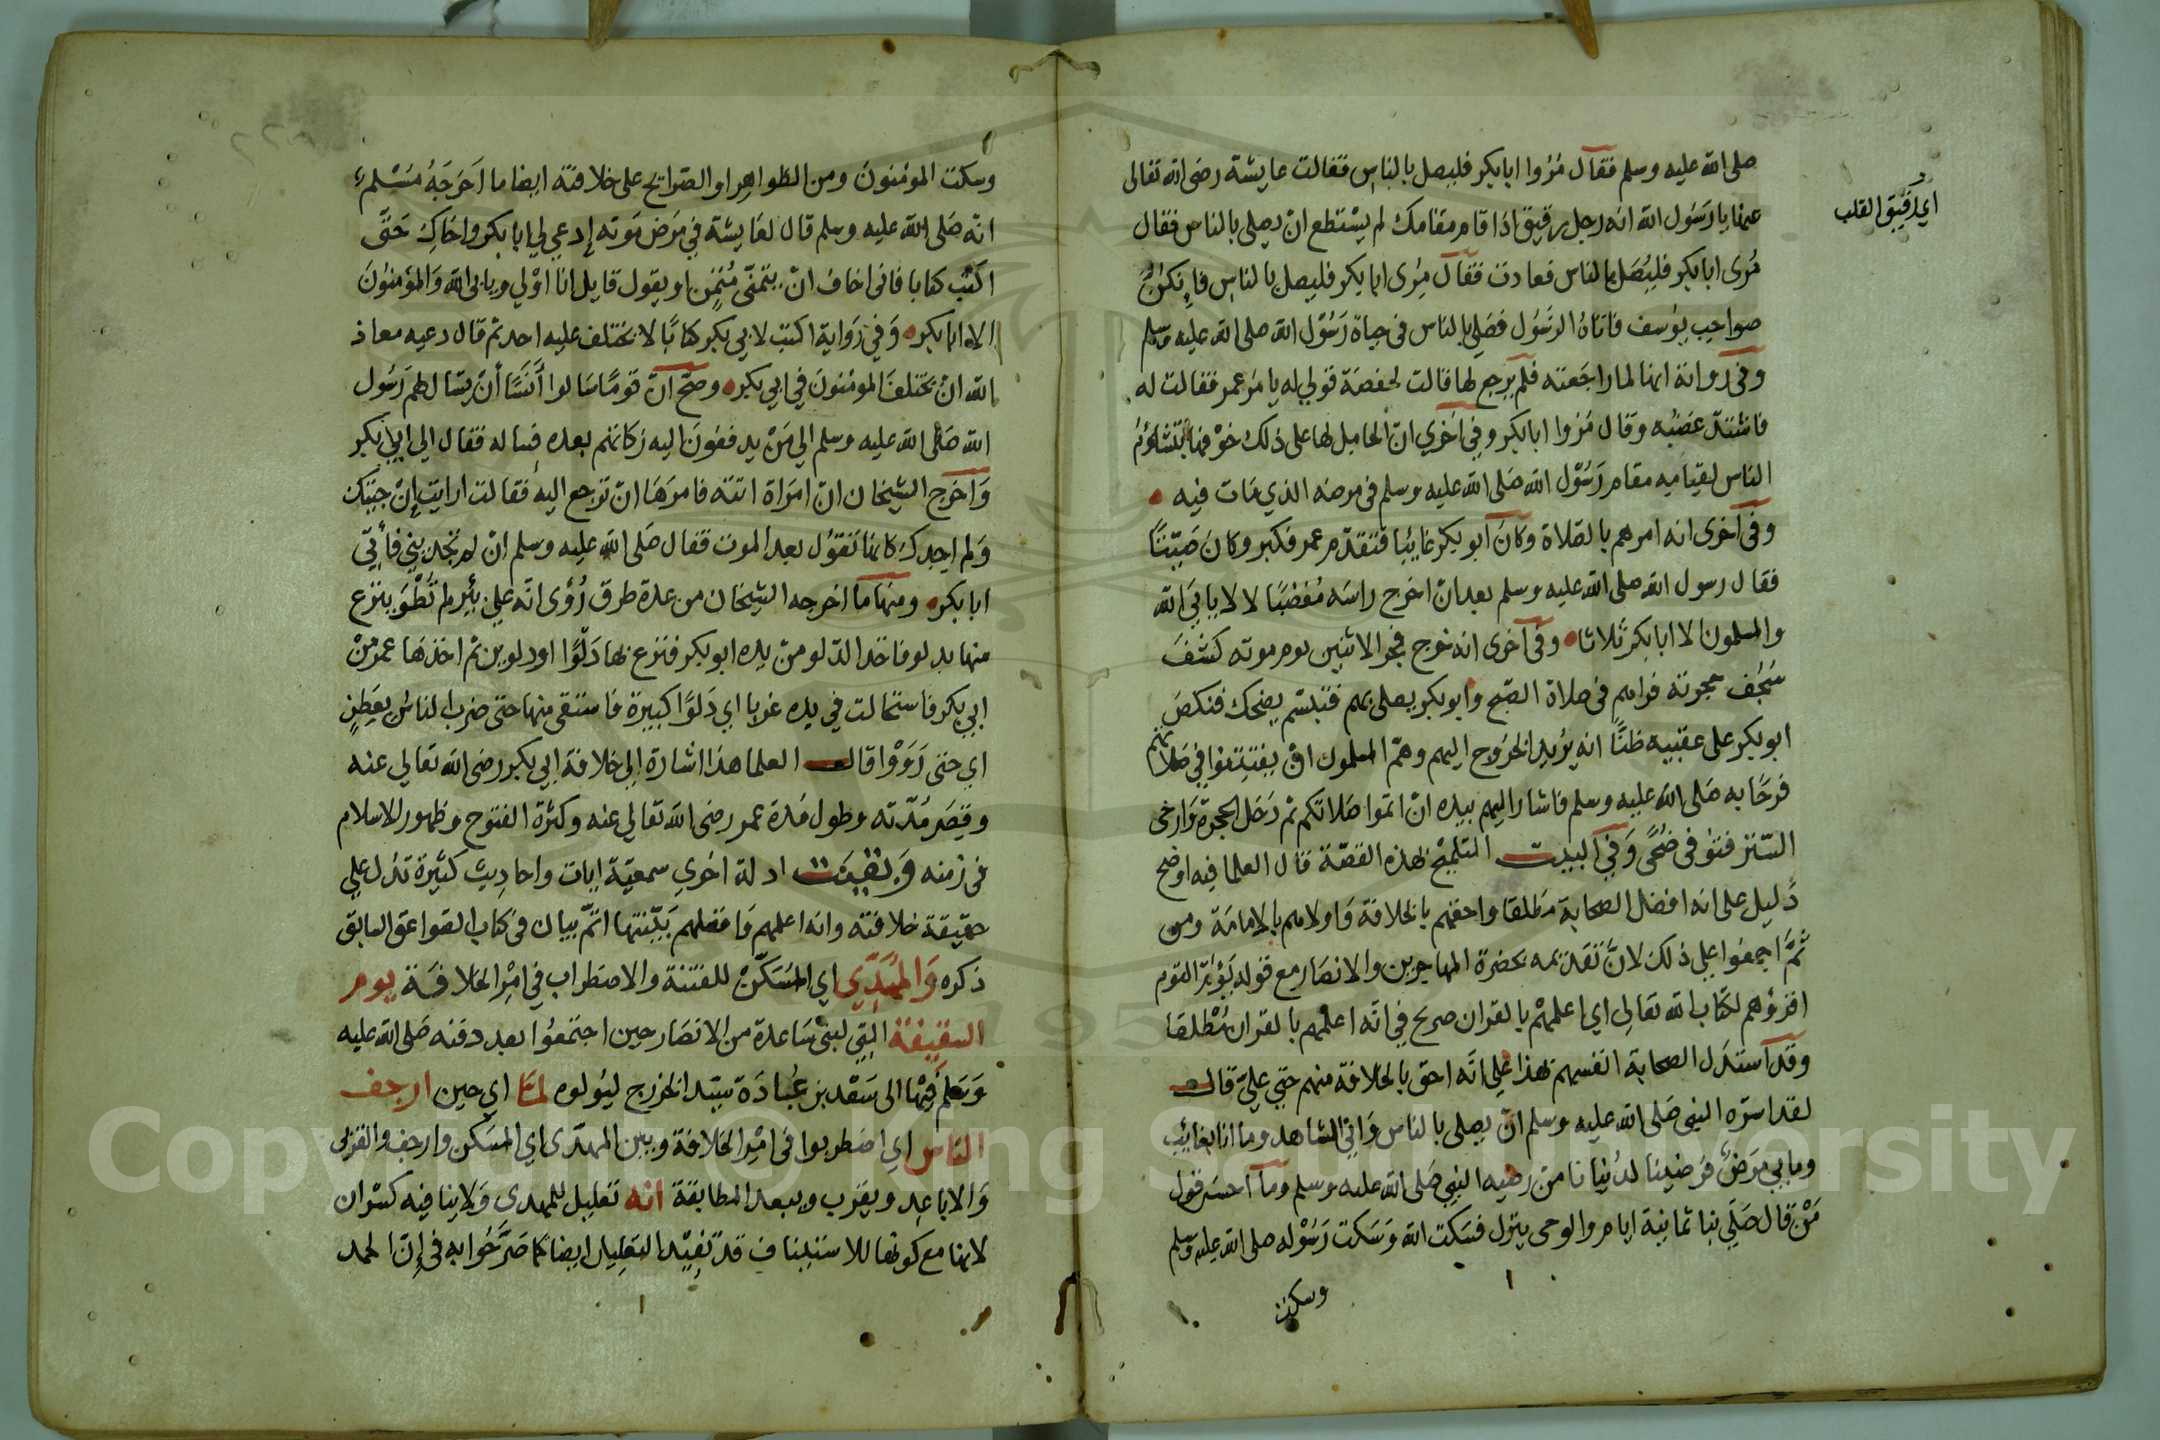 صلى الله عليه وسلم فقال مُرُوا ابابكر فليصل بالناس فقالت عايشة رضى الله تعالى
عنها يا رَسُول الله انه رجل رقيق اذا قام مقامك لم يستطع انْ يصلى بالناس فقال
اي رقيق القلب
مُرى ابا بكر فليُصَل بالناس فعادت فقال مُرِى ابا بكر فليصل بالناسِ فاِنكنَّ
صواحِب يوُسف فاتاهُ الرسُول فصَلى بالناس فى حياة رَسُوْل الله صلى الله عليه وسلم
وفى رواية انها لما راجَعته فلم يرجع لها قالت لحفصَة قولي له يا مُر عمر فقالت له
فاشتدّ غضبُه وقال مُرُوا ابا بكر وفي اخري انّ الحامِل لها على ذلك خوْفها تشاؤمُ
الناس لقيامِه مقام رَسُوْل الله صَلى الله عليه وسلم فى مرضه الذي مَات فيه
وفى اخرى انه امرهم بالصلاة وكانَ ابو بكر غائبًا فتقدّم عمر فكبر وكانَ صَيّتًا
فقال رسول الله صلى الله عليه وسلم بعد انْ اخرج راسَه مُغْضَبًا لا لا يابىَ الله
والمسلمون الا ابا بكر ثلاثا وفى اخرى انه خرج فجر الاثنين يوم موته كشفَ
سُجُف حجرته فراهم فى صلاة الصّبح وابو بكر يصلى بهم فتبسّم يضحك فنكصَ
ابو بكر على عقبيه ظنًّا انه يُريد الخرُوج اليهم وهمّ المسلمون انْ يفتتنوا في صَلاتهم
فرحًا به صَلى الله عليه وسلم فاشار اليهم بيده انْ اتموا صَلاتكم ثم دَخل الحجرة وَارخى
السّتر فتوُفى ضُحًى وَفي البيت التلميحُ لهذه القصّة قال العلما فيه اوضح
دَليل على انه افضل الصحابة مُطلقا واحقهم بالخلافة وَاولاهم بالامامَة ومن
ثمَّ اجمعُوا على ذلك لانَّ تقديمه بحضرة المهاجرين والانصَار مع قوله يَؤمّ القوم
اقرؤهم لكتاب الله تعالى اي اعلمهُم بالقران صريح في انّه اعلمهم بالقران مُطلقا
وقد استدَل الصحابة انفسهم بهذا على انَه احق بالخلافة منهم حتى عليّ قال
لقد امرَه النبى صَلى الله عليه وسلم انْ يصلى بالناس وَانِّي لشاهد وما انا بغائِب
وما بي مَرَضٌ فرَضينا لدُنيانا منْ رضيه النبِى صَلى الله عليه وسلم ومَا احسَن قول
مَنْ قال صَلَّي بنا ثمانية ايام والوحى ينزل فسَكت الله وَسَكت رَسُوْله صلى الله عليه وسلم
وسكت
وسكت المؤمنونَ ومن الظواهِر او الصَرايح على خلافته ايضا ما اَخرَجَهُ مُسْلم
انه صَلى الله عليه وسلم قال لعَايشة في مَرَض مَوته اِدعى لي ابا بكر واخاكِ حَتّى
اكتب كتابا فانى اخاف انْ يتمنّى مُتمَنٍ او يقول قايل انا اوْلى ويابى الله وَالمؤمنُونَ
الا ابا بكر وَفي رَواية اكتب لابي بكر كتابًا لا يختلف عليه احد ثم قال دعيه معاذ
الله انْ يَختلفَ المؤمنونَ في ابي بكر وصَحّ انّ قومًا سَالوا أنسًا أنْ يسَال لهم رَسُول
الله صَلى الله عليه وسلم الي مَنْ يدفعُونَ اليه زكاتهم بعده فساله فقال الي ابي بكر
وَاخرج الشيخان انّ امرَاة اتته فامرَهَا انْ ترجع اليه فقالت ارايت اِنْ جيتك
وَلم اجدك كانها تقوُل بعد الموت فقال صَلى الله عليه وسلم انْ لم تجديني فأتي
ابا بكر ومنها ما اخرجه الشيخان من عدة طرق رُؤْى انه على بئر لم تُطْوَ ينزع
منها بدلو فاخذ الدّلو منْ يده ابو بكر فنزع بها دَلْوًا او دلوين ثم اخذهَا عمر منْ
ابي بكر فاستحالت في يده غربا اي دَلوًا كبيرة فاستقى منها حتى ضرب الناسُ بعَطنٍ
اي حتى رَوَوْا قال العلما هذا اشارة الي خلافة ابي بكر رضى الله تعالي عنه
وقِصَر مُدّته وطول مُدة عمر رضى الله تعالي عنه وكثرة الفتوح وظهور الاسلام
فى زمنه وَبقيَت ادلة اخري سمعيّة ايات واحاديث كثيرة تدُل على
حقيقة خلافته وانه اعلمهم وَافضلهم بَيّنتها اتمّ بيان فى كتاب الصَواعق السابق
ذكره وَالمُهَدِّي اي المُسَكّنْ للفتنة والاضطراب في امْر الخلافَة يوم
السقيفة التِي لبنى سَاعدة من الانصَار حين اجتمعُوا بعد دفنه صَلى الله عليه
وَسَلم فِيْها الى سَعْد بن عُبَادَة سَيّد الخزرج ليُولوه لمّا اي حين ارجف
الناس اي اضطربوا فى امْر الخلافة وبين المهدّى اي المسَكن وارجف والقربى
وَالاباعِد ويقرب ويبعد المطابقة انه تعليل للمهدى وَلا ينافيه كسْر ان
لانها مع كونها للاستيناف قدْ تُفِيْد التعليل ايضا كما صَرَّحُوا به فى اِنّ الحمد